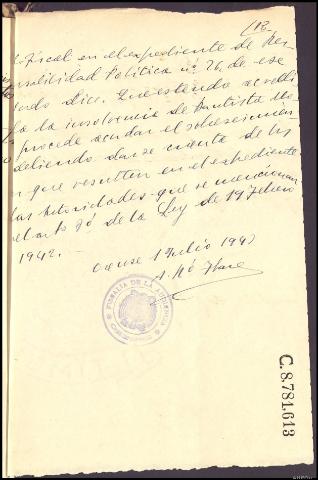 Fiscal en el expediente de Res-
ponsabilidad Política nº 26, de ese
Dice. Que estando acredi-
la insolvencia de Bautista
procede acordar el sobreseimien
debiendo darse cuenta de los
que resulten en el expediente
las Autoridades que se mencionan
el arto 8º de la Ley de 19 Febrero
1942.-
Orense 1 Julio 194
FISCALIA DE LA AUDIENCIA
C.8.781.613